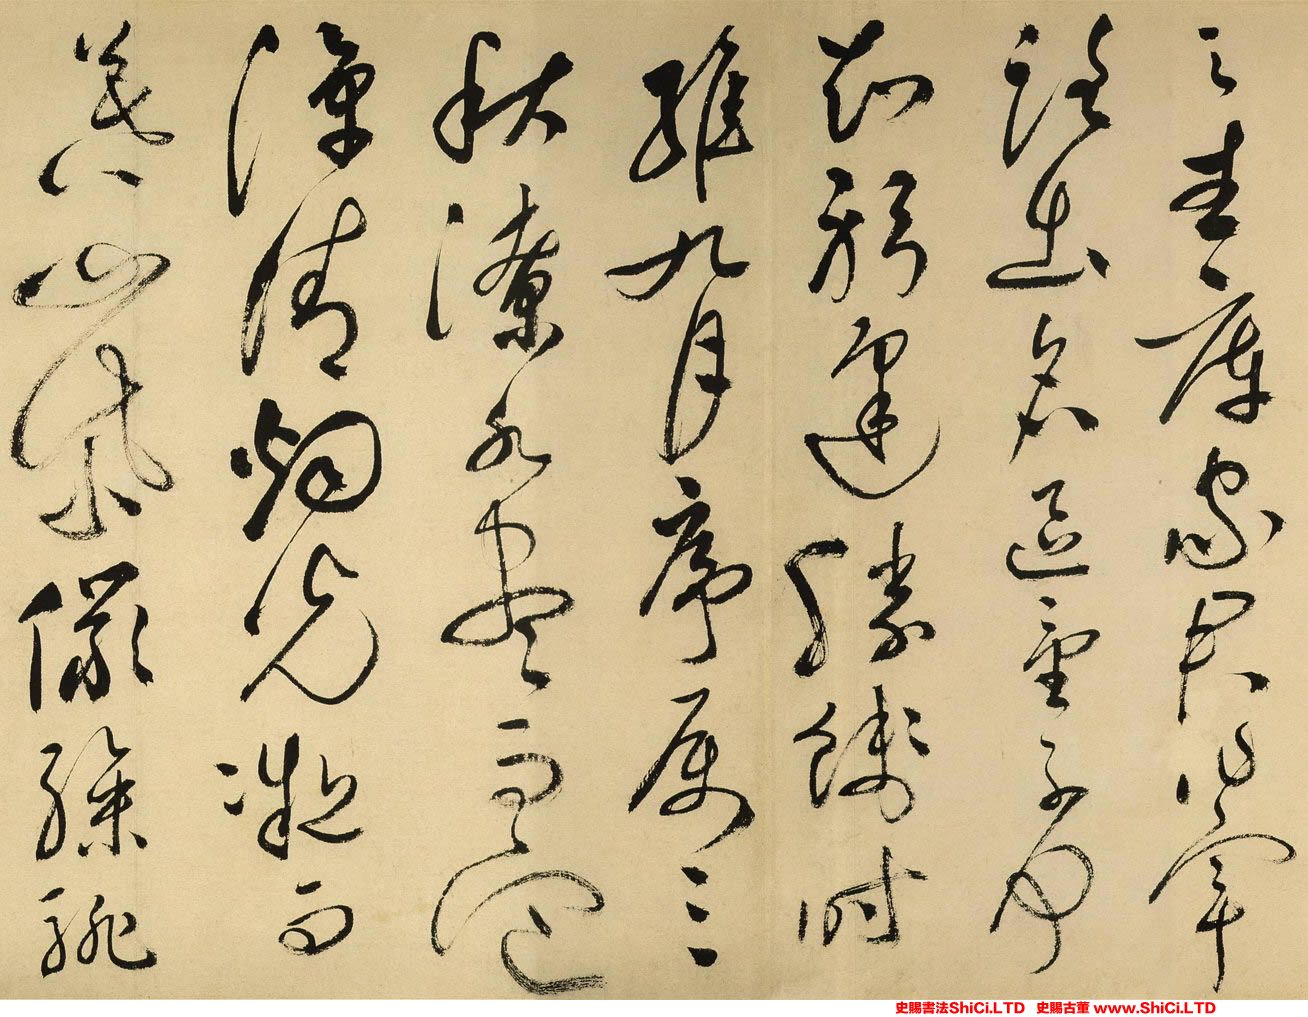 之武庫家君作宰
路出名區童子何
知躬逢勝餞時
維九月序屬三
秋潦水盡而寒
潭清烟光凝而
暮山紫儼驂騑
史賜書法ShiCi.LTD 史賜古董 www.ShiCi.LTD